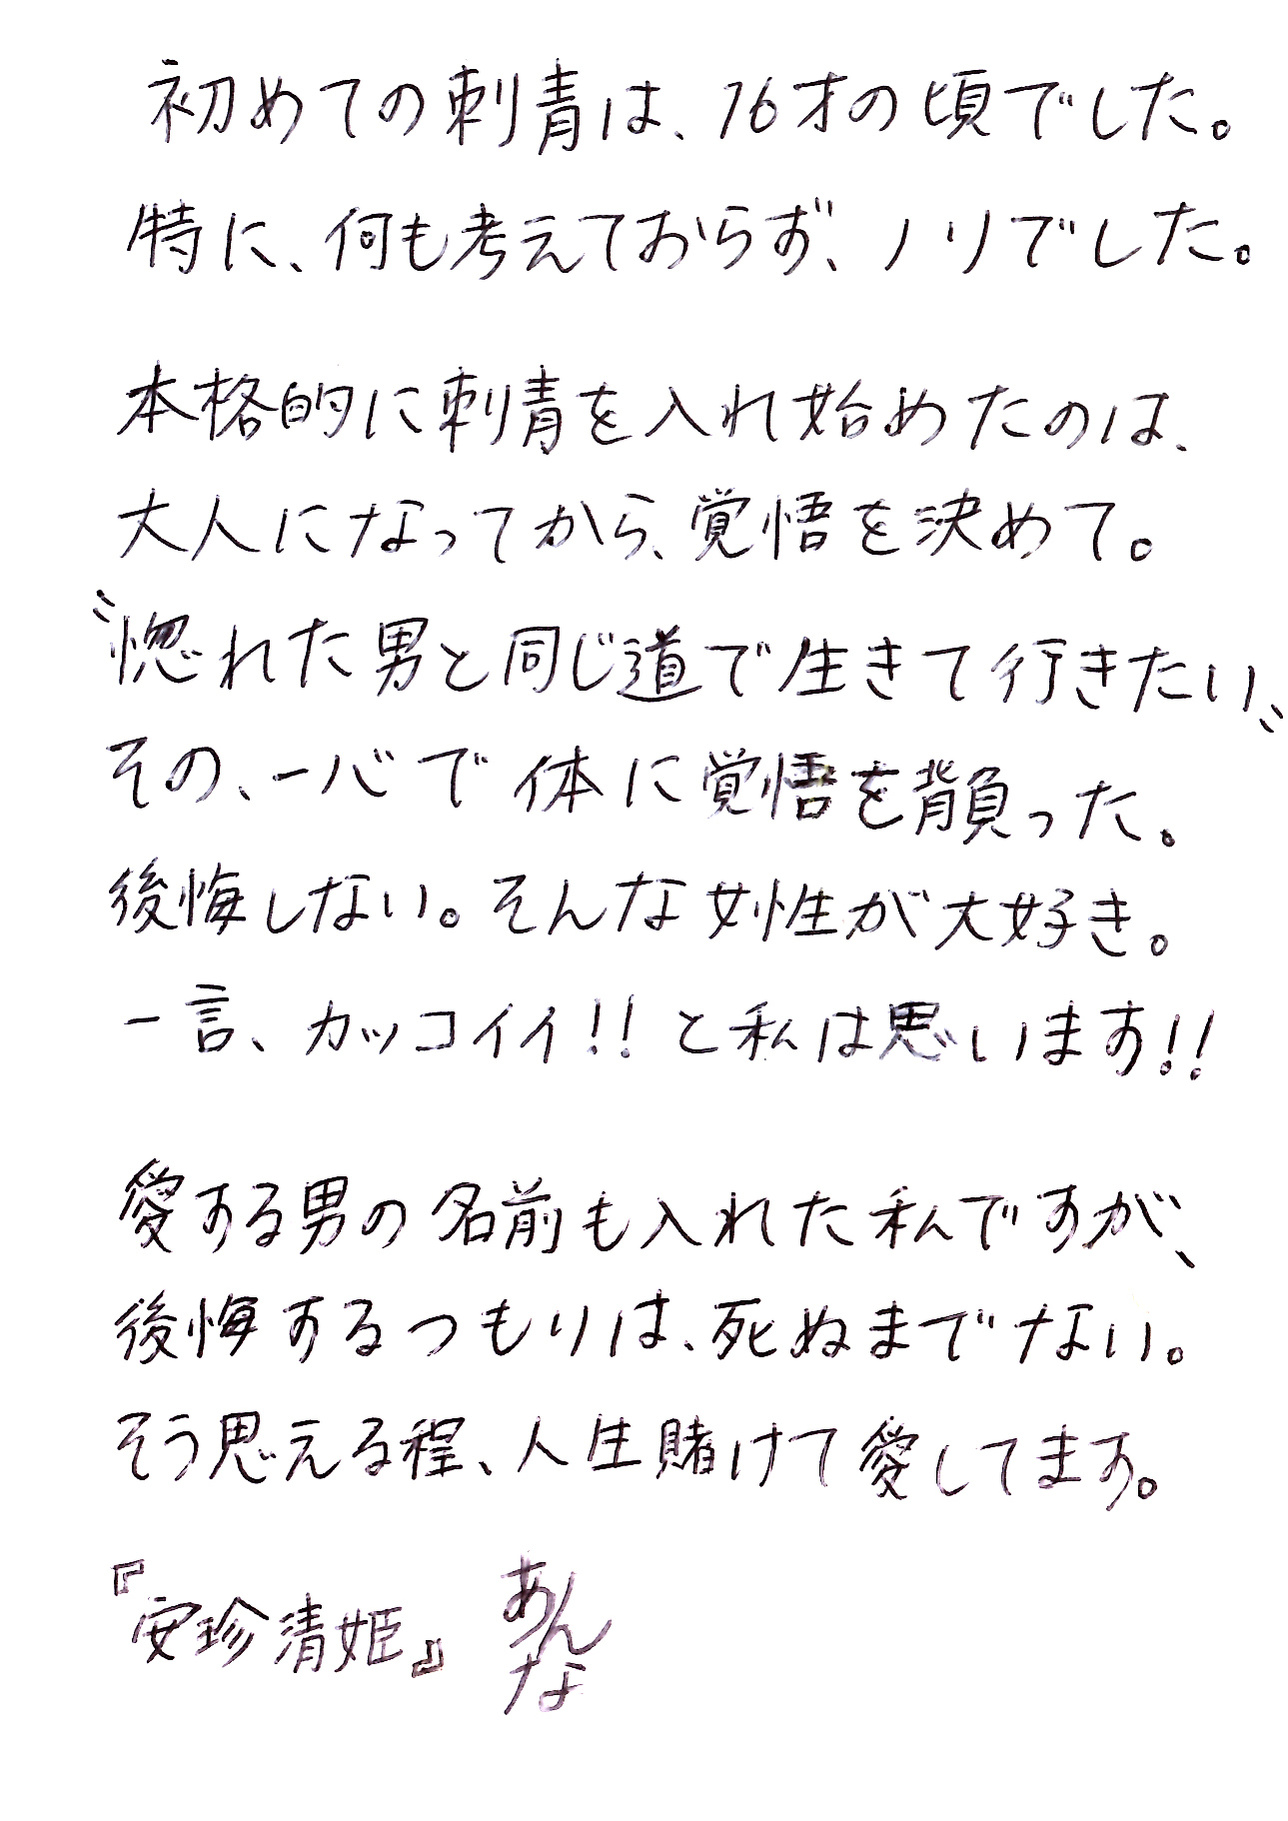 初めての刺青は、16才の頃でした。
特に、何も考えておらず、ノリでした。
本格的に刺青を入れ始めたのは、
大人になってから、覚悟を決めて。
〝惚れた男と同じ道で生きて行きたい〟
その、一心で体に覚悟を背負った。
後悔しない。そんな女性が大好き。
一言、カッコイイ!!と私は思います!!
愛する男の名前も入れた私ですが、
後悔するつもりは、死ぬまでない。
そう思える程、人生賭けて愛してます。
『安珍清姫』 あんな